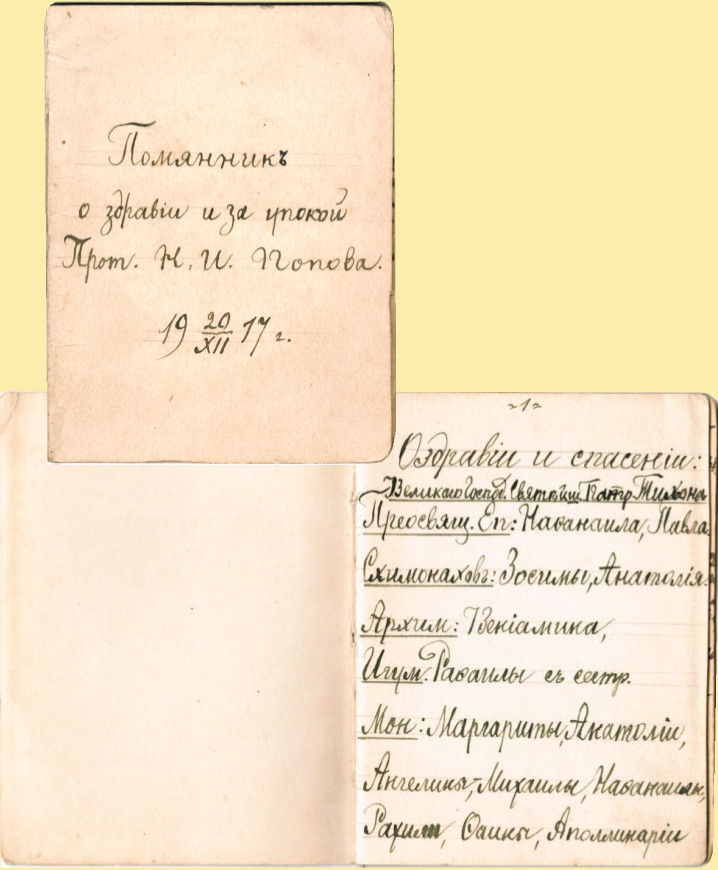 Помянникъ
о здравіи и за упокой
Прот. Н. И. Попова.
19 20/XII 17 г.
~1~
О здравіи и спасеніи:
Великаго Госпд. Святѣйш. Патр. Тихона
Преосвящ. Еп: Наѳанаила, Павла
Схимонаховъ: Зосимы, Анатолія.
Архим: Веніамина,
Игум. Рафаилы съ сестр.
Мон: Маргариты, Анатоліи,
Ангелины, Михаилы, Наѳанаилы,
Рахили, Ѳаины, Аполлинаріи